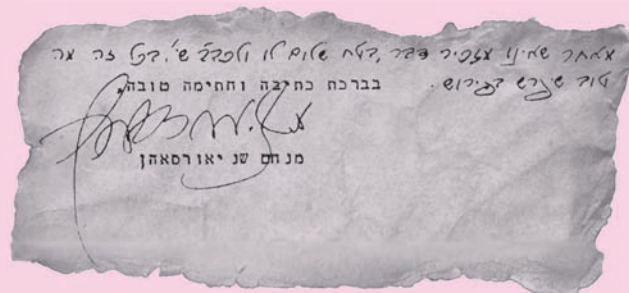 מאחר שאינו מזכיר דבר, בטח שלום לו ולכב"ב שי'. בכל זה מה
טוב שיפרש בפירוש. בברכת כתיבה וחתימה טובה,
מנחם שניאורסאהן